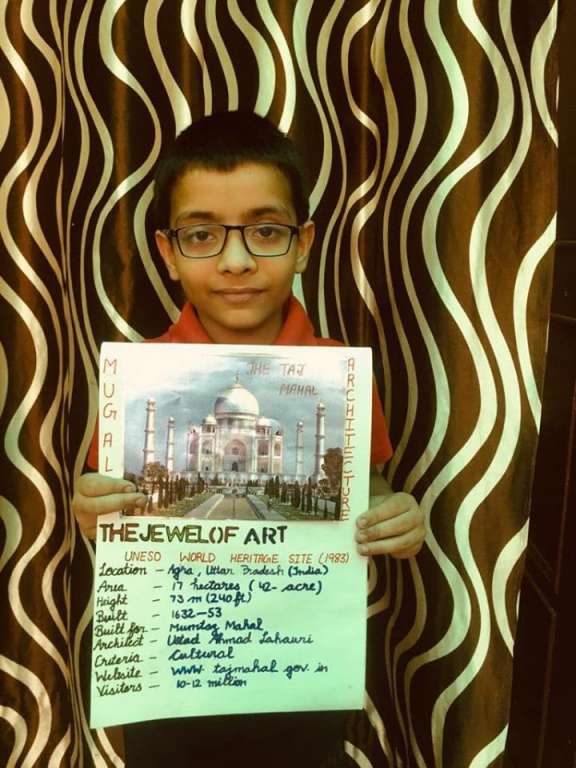 MUGAL
THE TAJ
MAHAL
ARCHITECTURE
THE JEWEL OF ART
UNESO WORLD HERITAGE SITE (1983)
Location - Agra, Uttar Pradesh (India)
Area - 17 hectares (42- acre)
Height - 73 m (240 ft)
Built - 1632-53
Built for - Mumtaz Mahal
Architect - Ustad Ahmad Lahauri
Criteria - Cultural
Website - www. tajmahal. gov. in
Visitors - 10-12 million